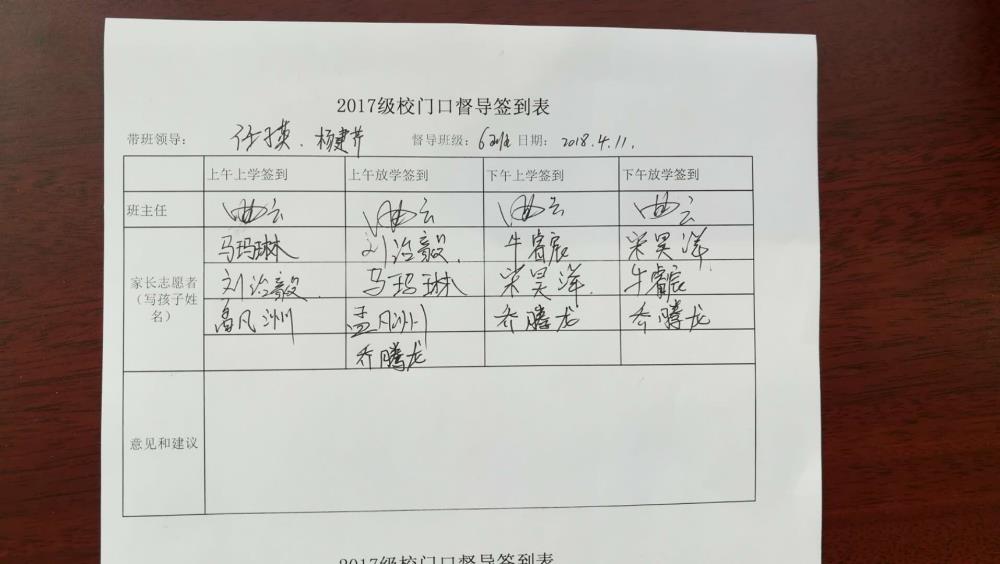 2017级校门口督导签到表
带班领导： 杨建芹 督导班级：6班 日期：2018.4.11.
上午上学签到 上午放学签到 下午上学签到 下午放学签到
班主任 曲云 曲云 曲云 曲云
家长志愿者（写孩子姓名）
马玛琳 刘治毅 牛睿宸 宋昊洋
刘治毅 马玛琳 宋昊洋 牛睿宸
孟凡洲 乔腾龙 乔腾龙
乔腾龙
意见和建议
2017级校门口督导签到表